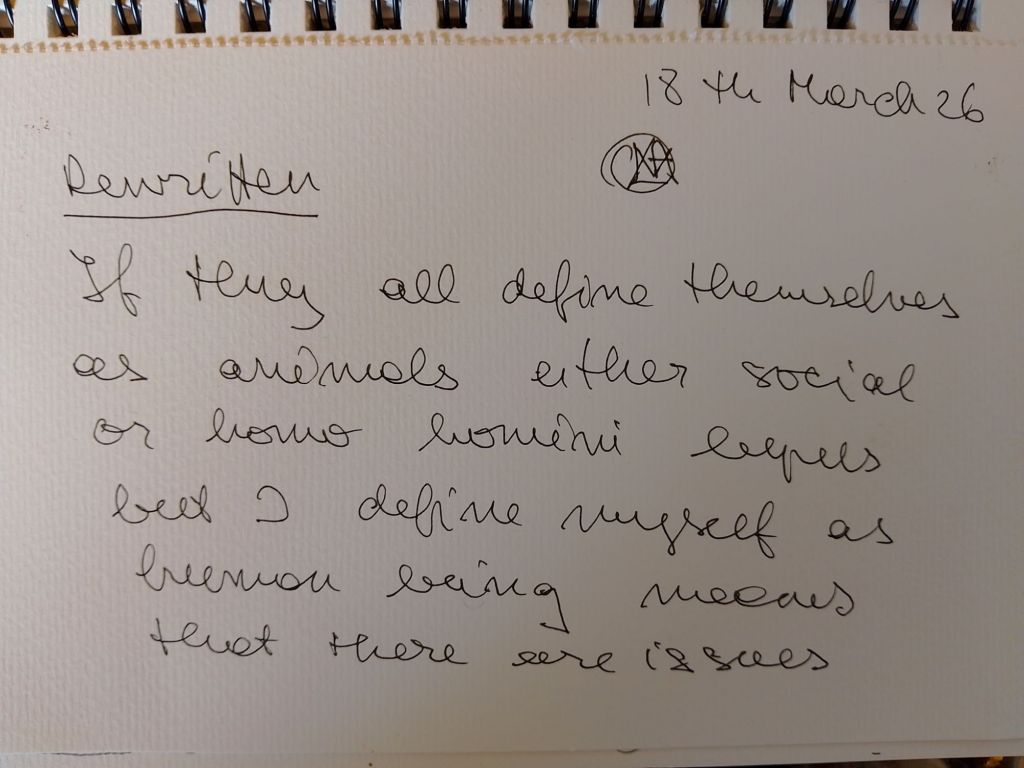 18th March 26
Rewritten
If they all define themselves
as animals either social
or homo homini lupus
but I define myself as
human being means
that there are issues